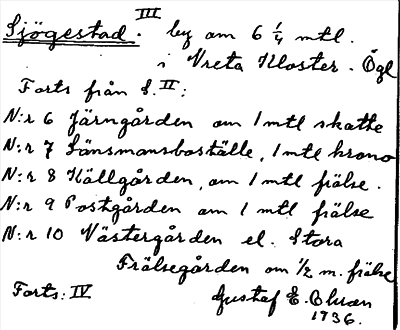 Sjögestad. III by om 6 1/4 mtl.
i Vreta Kloster. Ögl
Forts från S. II:
N:r 6 Järngården om 1 mtl skatte
N:r 7 Länsmansboställe, 1 mtl krono
N:r 8 Källgården, om 1 mtl frälse.
N:r 9 Postgården om 1 mtl frälse
N:r 10 Västergården el. Stora
Frälsegården om 1/2 m. frälse
Forts: IV Gustaf E.
1736.